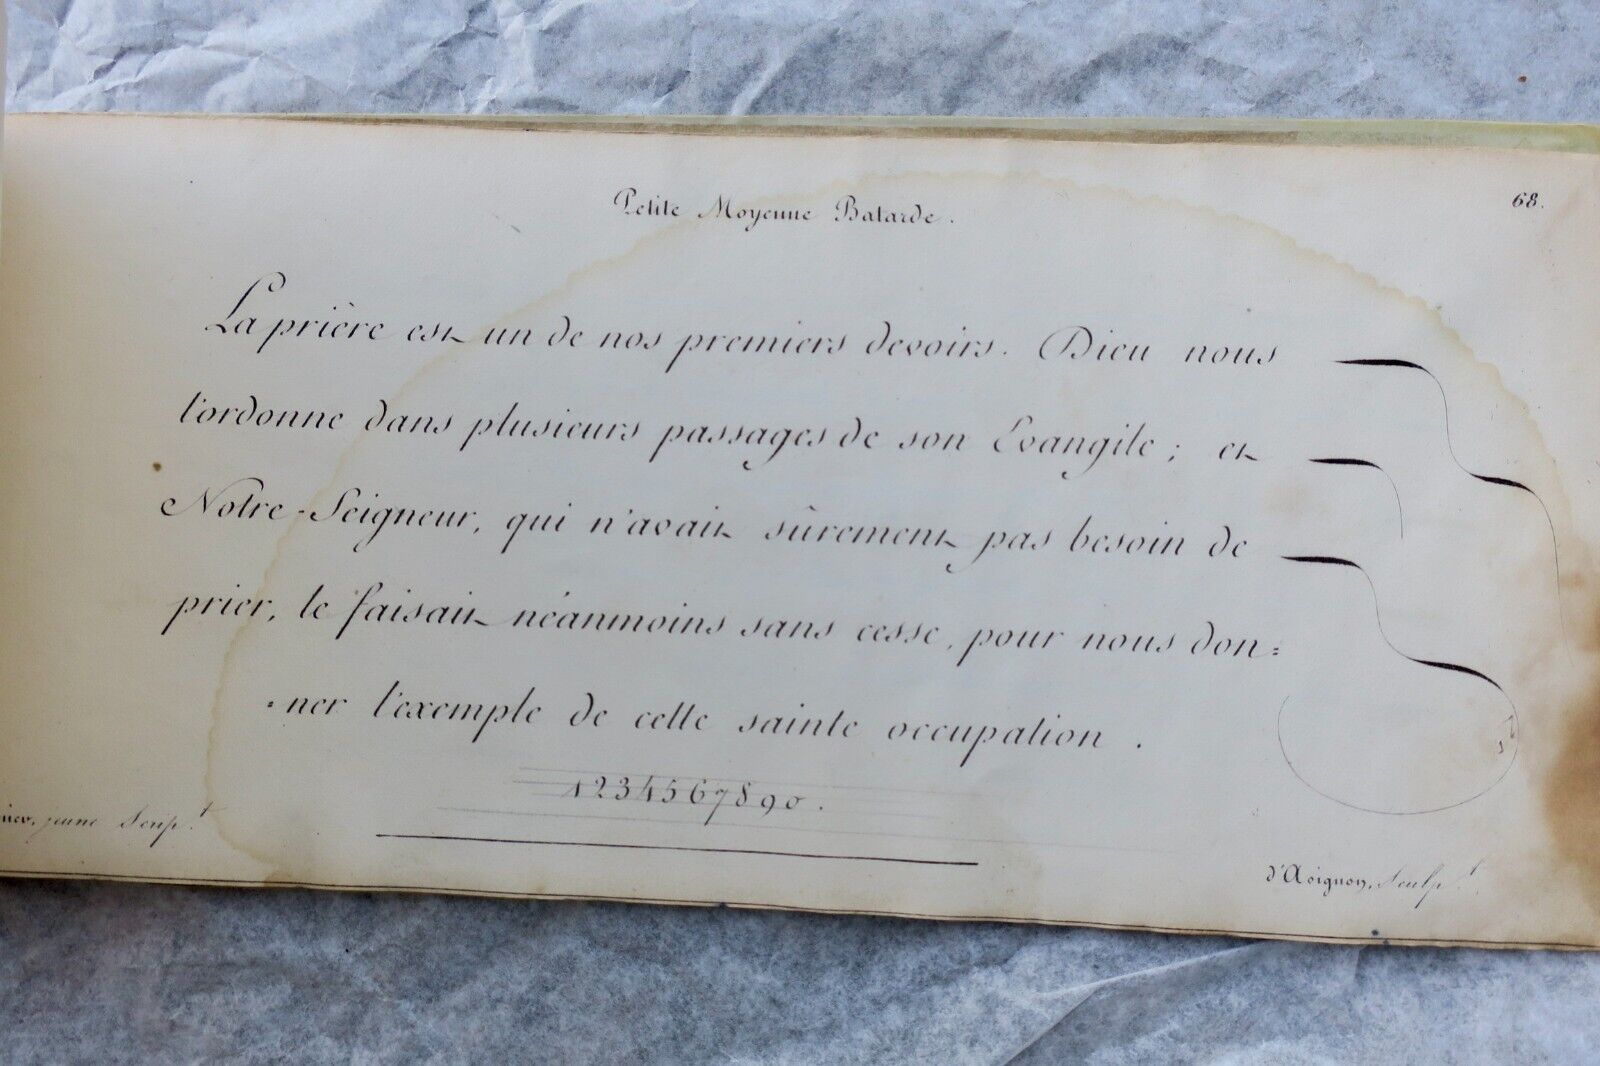 Petite Moyenne Batarde.
68.
La prière est un de nos premiers devoirs. Dieu nous
l'ordonne dans plusieurs passages de son Evangile; et
Notre-Seigneur, qui n'avait sûrement pas besoin de
prier, le faisait néanmoins sans cesse, pour nous don=
=ner l'exemple de cette sainte occupation.
1234567890.
jeune Sculp.t
d'Avignon, Sculp.t